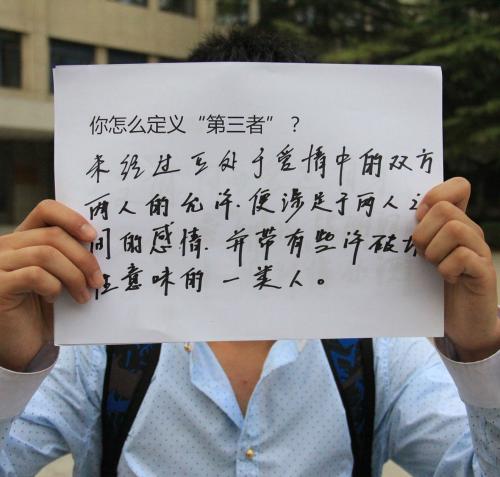 你怎么定义“第三者”？
未经过正处于爱情中的双方
两人的允许.便涉足于两人之
间的感情.并带有些许破坏
性意味的一类人。